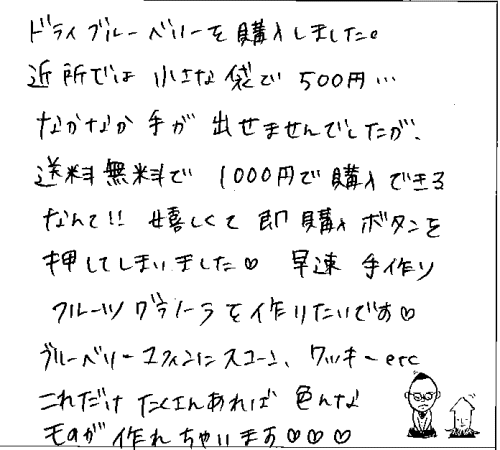 ドライブルーベリーを購入しました。
近所では小さな袋で500円…
なかなか手が出せませんでしたが、
送料無料で1000円で購入できる
なんて!!嬉しくて即購入ボタンを
押してしまいました♡ 早速手作り
フルーツグラノーラを作りたいです♡
ブルーベリーマフィンにスコーン、クッキーetc
これだけたくさんあれば色んな
ものが作れちゃいます♡♡♡